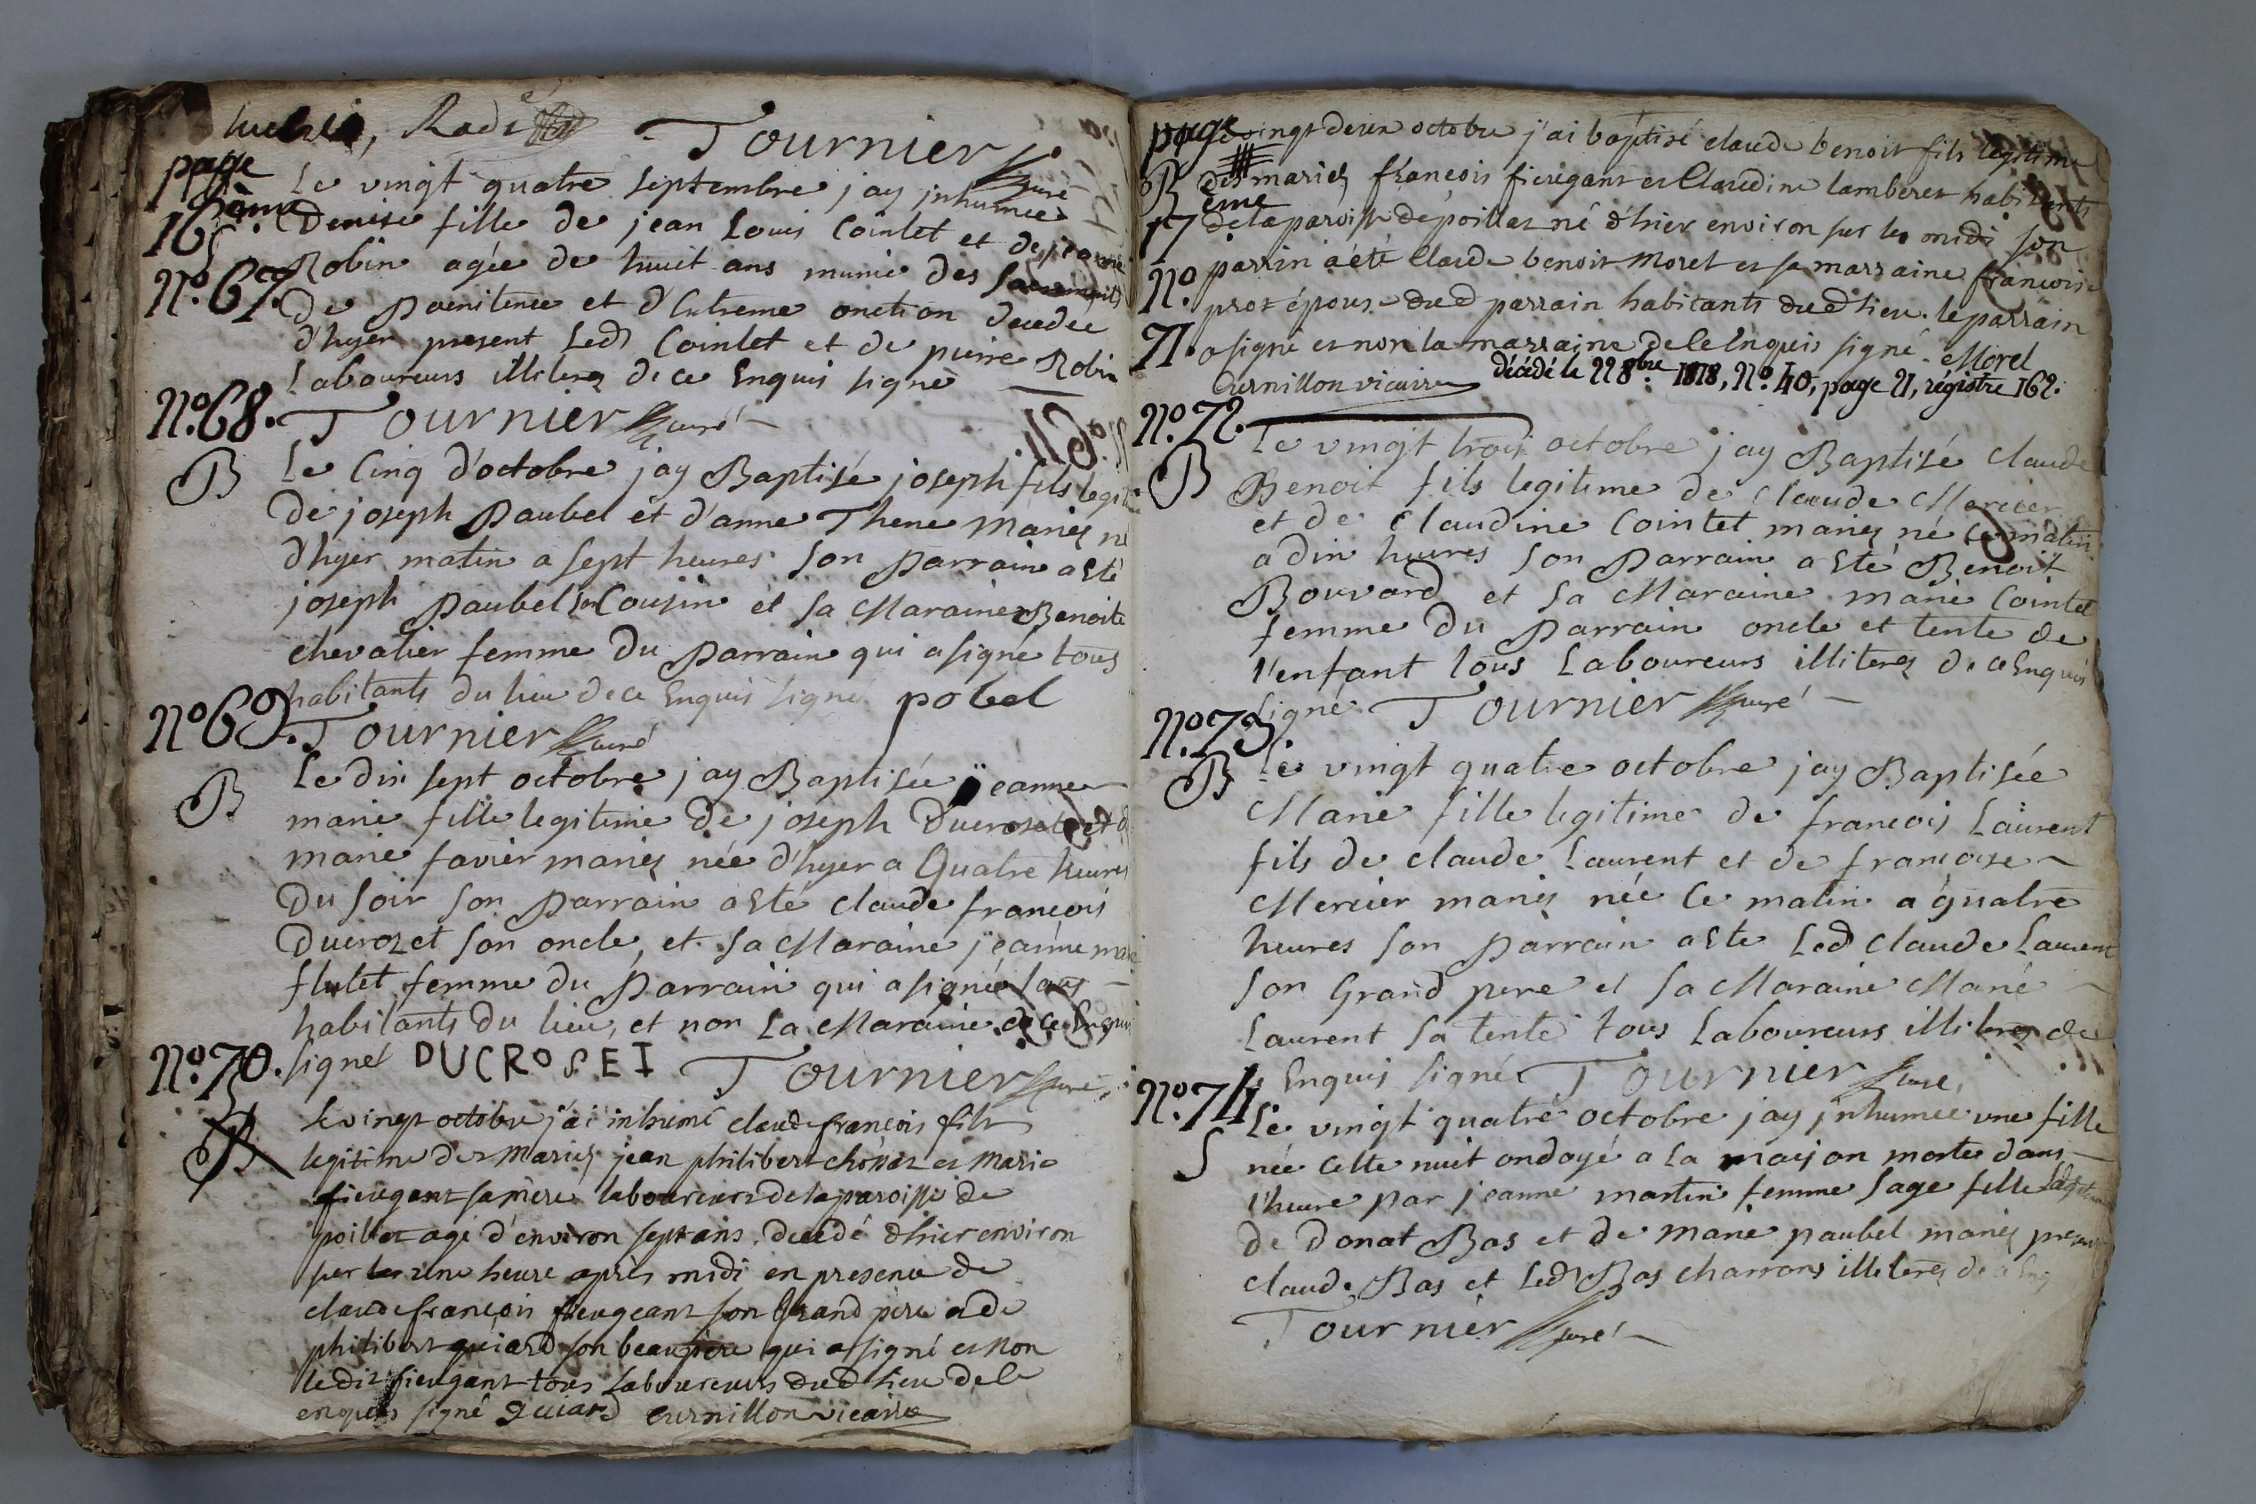 Tournier curé
page
16ème
Le vingt quatre septembre jay jnhumée
S
Denise fille de jean Louis Cointet et de jeanne
Robin agée de huit ans munie des sacrements
No. 67.
de pœnitence et d'Extreme onction decedée
d'hyer present Led Cointet et de pierre Robin
Laboureurs illiteres de ce Enquis signé
No. 68.
Tournier curé
B
Le Cinq d'octobre jay Baptisé joseph fils legit
de joseph Paubel et d'anne Thene mariés né
d'hyer matin a sept heures son Parrain a Eté
joseph Paubel son Cousin et sa Maraine Benoite
chevalier femme du Parrain qui a signé tous
habitants du lieu de ce Enquis signé pobel
No 69.
Tournier curé
B
Le dix sept octobre jay Baptisée jeanne
marie fille legitime de joseph Ducroset et de
marie favier mariés née d'hyer a Quatre heures
du soir son Parrain a Eté claude francois
Ducrozet son oncle, et sa Maraine jeanne marie
flutet femme du Parrain qui a signé tous
habitants du lieu, et non La Maraine de ce Enquis
No. 70.
signé DUCROSEI Tournier curé
S
B
le vingt octobre j'ai inhumé claude françois fils
legitime des mariés jean philibert chônaz et marie
fieugant sa mere laboureurs de la paroisse de
poillat agé d'environ sept ans, decedé d'hier environ
sur les une heure après midi en presence de
claude françois fieugeant son Grand père et de
philibert guiard son beaupere qui a signé et non
ledit fieugant tous Laboureurs dud lieu de le
enquis signé guiard Curnillon vicaire
page
17
ème
Le vingt deux octobre j'ai baptisé claude benoit fils legitime
B
des mariés françois fieugant et Claudine lamberet habitants
de la paroisse de poillat né d'hier environ sur les midi son
No
parrin a été Claude benoit Morel et sa marraine françoise
prot épouse dud parrain habitants dud lieu. le parrain
71.
a signé et non la marraine de le Enquis signé. Morel
Curnillon vicaire décédé le 22 8bre 1818, No. 40, page 21, régistre 162.
No. 72.
Le vingt trois octobre jay Baptisé claude
B
Benoit fils legitime de Claude Mercier
et de Claudine Cointet mariés né ce matin
a dix heures son Parrain a Eté Benoit
Bouvard et sa Maraine marie Cointet
femme du Parrain oncle et tente de
l'enfant tous Laboureurs illiteres de ce Enquis
signé Tournier curé
No. 73.
B
Le vingt quatre octobre jay Baptisée
Marie fille legitime de francois Laurent
fils de claude Laurent et de francoise
Mercier mariés née ce matin a quatre
heures son Parrain a Eté Led claude Laurent
son Grand pere et sa Maraine Marie
Laurent sa tente tous Laboureurs illiteres de
ce Enquis signé Tournier curé
No. 74
Le vingt quatre octobre jay jnhumée une fille
S
née cette nuit ondoyé a la maison morte dans
l'heure par jeanne martin femme sage fille legitime
de Donat Bas et de marie paubel mariés present
claude Bas et Led Bas charrons illiteres de ce Enq
Tournier curé